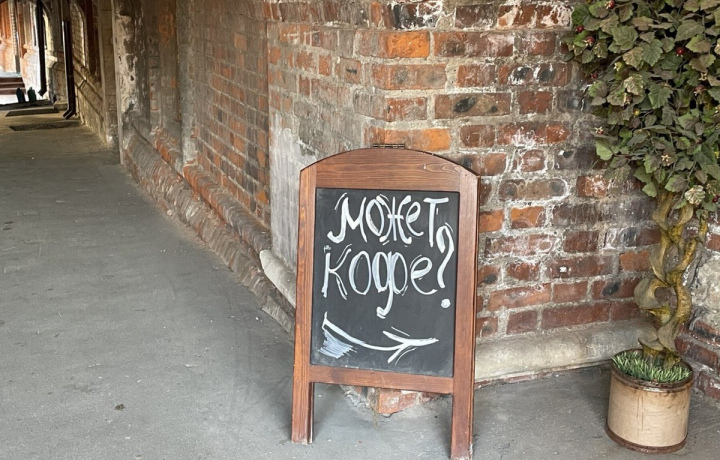 Может
кофе?